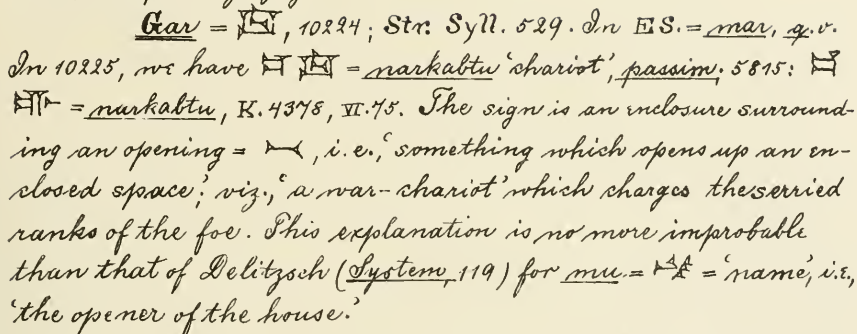 Gar = 𒃼, 10224; Str. Syll. 529. In ES. = mar, q.v.
In 10225, we have 𒄑 𒃼 = narkabtu 'chariot', passim. 5815: 𒄑
= narkabtu, K. 4378, VI. 75. The sign is an enclosure surround-
ing an opening = , i.e., 'something which opens up an en-
closed space', viz., 'a war-chariot' which charges the serried
ranks of the foe. This explanation is no more improbable
than that of Delitzsch (System, 119) for mu = 𒈬 = 'name', i.e.,
'the opener of the house.'